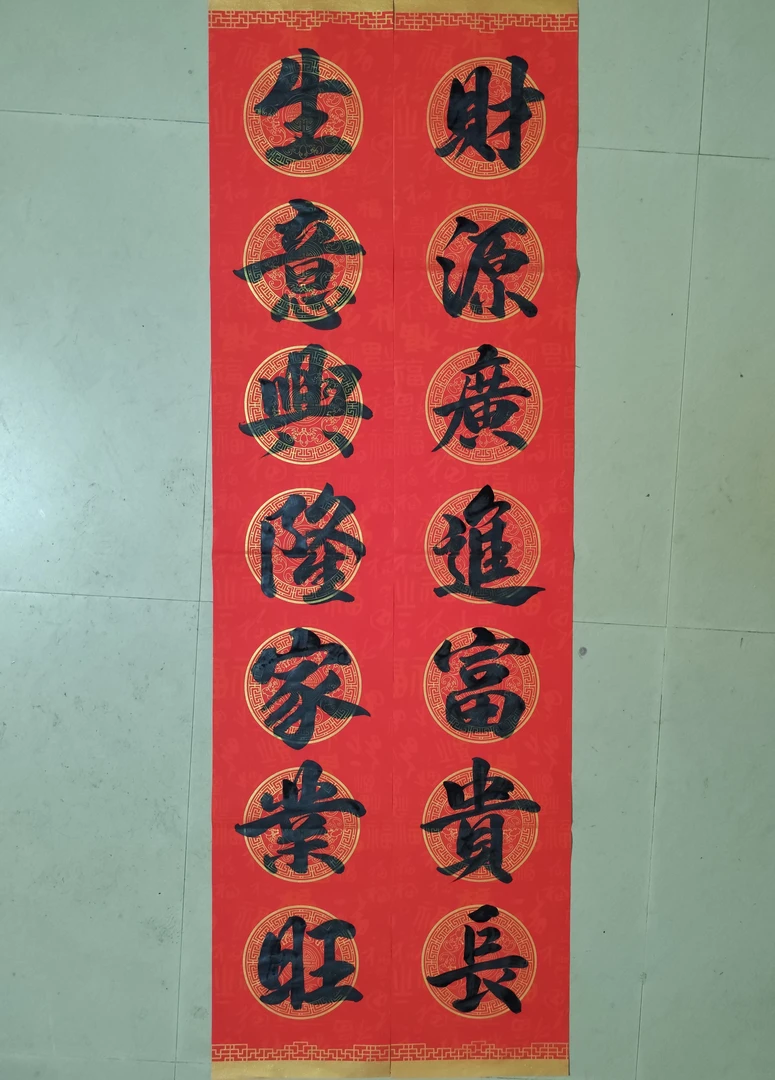 財源廣進富貴長
生意興隆家業旺